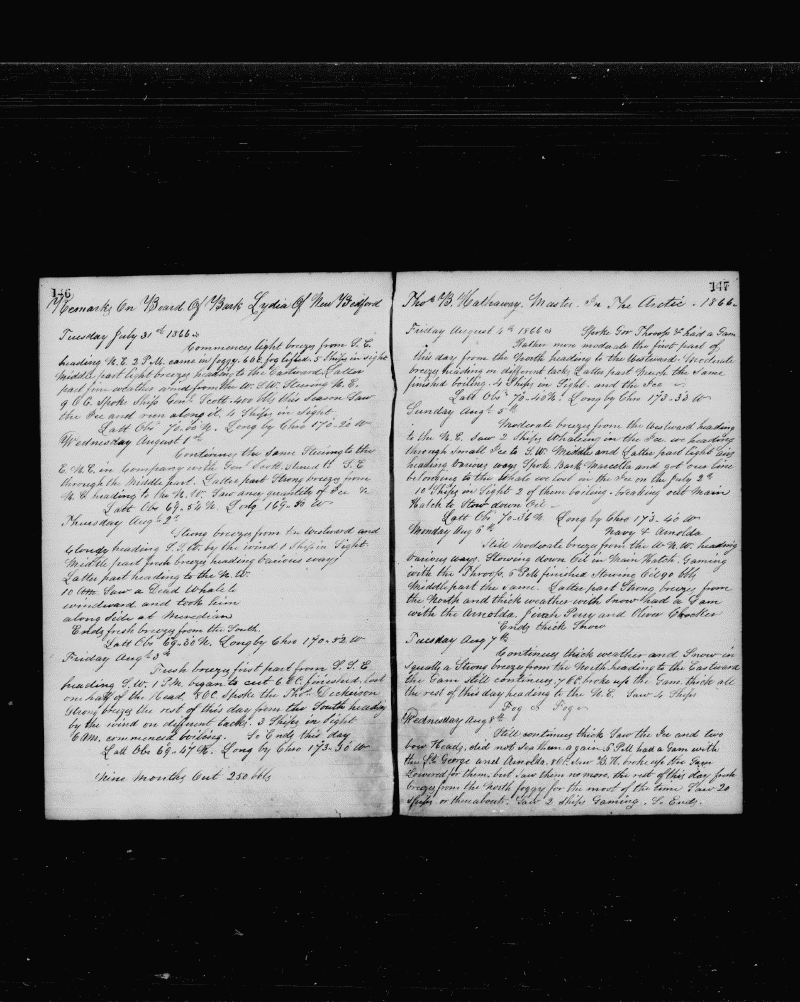 146
Remarks On Board Of Bark Lydia Of New Bedford
Tuesday July 31st 1866
Commences light breezes from S. E.
heading N.E. 2 P.M. came in foggy. 6 O.C. fog lifted. 5 Ships in sight
Middle part light breezes heading to the Eastward Latter
part fine weather wind from the W.S.W. Steering N.E.
9 O.C. Spoke Ship Genl Scott. 400 bbls this Season Saw
the Ice and run along it. 4 Ships in Sight
Latt Obs 70-00 N. Long by Chro 170-20 W
Wednesday August 1st
Continues the Same Steering to the
E.N.E. in Company with Genl Scott. S.E
through the Middle part. Latter part Strong breezes from
N.E. heading to the N.W. Saw quantity of Ice
Latt Obs 69-54 N. Long 169-30 W
Thursday Aug 2d
Strong breezes from the Westward and
Cloudy heading S.S.W. by the wind 1 Ship in Sight
Middle part fresh breezes heading various ways
Latter part heading to the N.W.
10 A.M. Saw a Dead Whale to
windward and took him
along side at Meredian
Ends fresh breezes from the South.
Latt Obs 69-30 N. Long by Chro 170-52 W
Friday Aug 3d
Fresh breezes first part from S.S.E
heading S.W. 1 P.M. began to cut 6 O.C. finished, lost
one half of the Head, 8 O.C. Spoke the Thos Dickason
Strong breezes the rest of this day from the South heading
by the wind on different tacks. 3 Ships in Sight
6 A.M. commenced boiling. So Ends this day
Latt Obs 69-47 N. Long by Chro 173-30 W
Nine Months Out 250 bbls
147
Thos B. Hathaway. Master. In The Arctic. 1866.
Friday August 4th 1866 Spoke Gov Throop & had a Gam
Rather more moderate the first part of
this day from the North heading to the Westward. Moderate
breezes heading on different tacks, Latter part Much the Same
finished boiling. 4 Ships in Sight. and the Ice
Latt Obs 70-40 N. Long by Chro 173-33 W
Sunday Augt 5th
Moderate breezes from the Westward heading
to the N.E. Saw 2 Ships Whaleing in the Ice we heading
through Small Ice to S.W. Middle and Latter part light airs
heading various ways Spoke Bark Marcella and got our line
belonging to the Whale we lost in the Ice on the July 2d
10 Ships in Sight 2 of them boiling. breaking out Main
Hatch to Stow down Oil
Latt Obs 70-36 N. Long by Chro 173-40 W
Monday Aug 6th Navy & Arnolda
Still moderate breezes from the W.N.W. heading
various ways. Stowing down Oil in Main Hatch. Gaming
with the Throop. 5 P.M. finished Stowing Oil 90 bbls
Middle part the same. Latter part Strong breezes from
the North and thick weather with Snow had a Gam
with the Arnolda. Jireh Perry and Oliver Crocker
Ends thick Snow
Tuesday Aug 7th
Continues thick weather and Snow in
squalls a Strong breeze from the North heading to the Eastward
the Gam still continues. 7 O.C broke up the Gam. thick all
the rest of this day heading to the N.E. Saw 4 Ships
Fog Fog
Wednesday Aug 8th
Still continues thick Saw the Ice and two
bow Heads, did not See them again. 5 P.M. had a Gam with
the St George and Arnolda. 8 O.C. Saw B.H. broke up the Gam
Lowered for them, but Saw them no more. the rest of this day fresh
breezes from the North foggy for the most of the time Saw 20
Ships or thereabouts. Saw 2 Ships Gaming. So Ends.